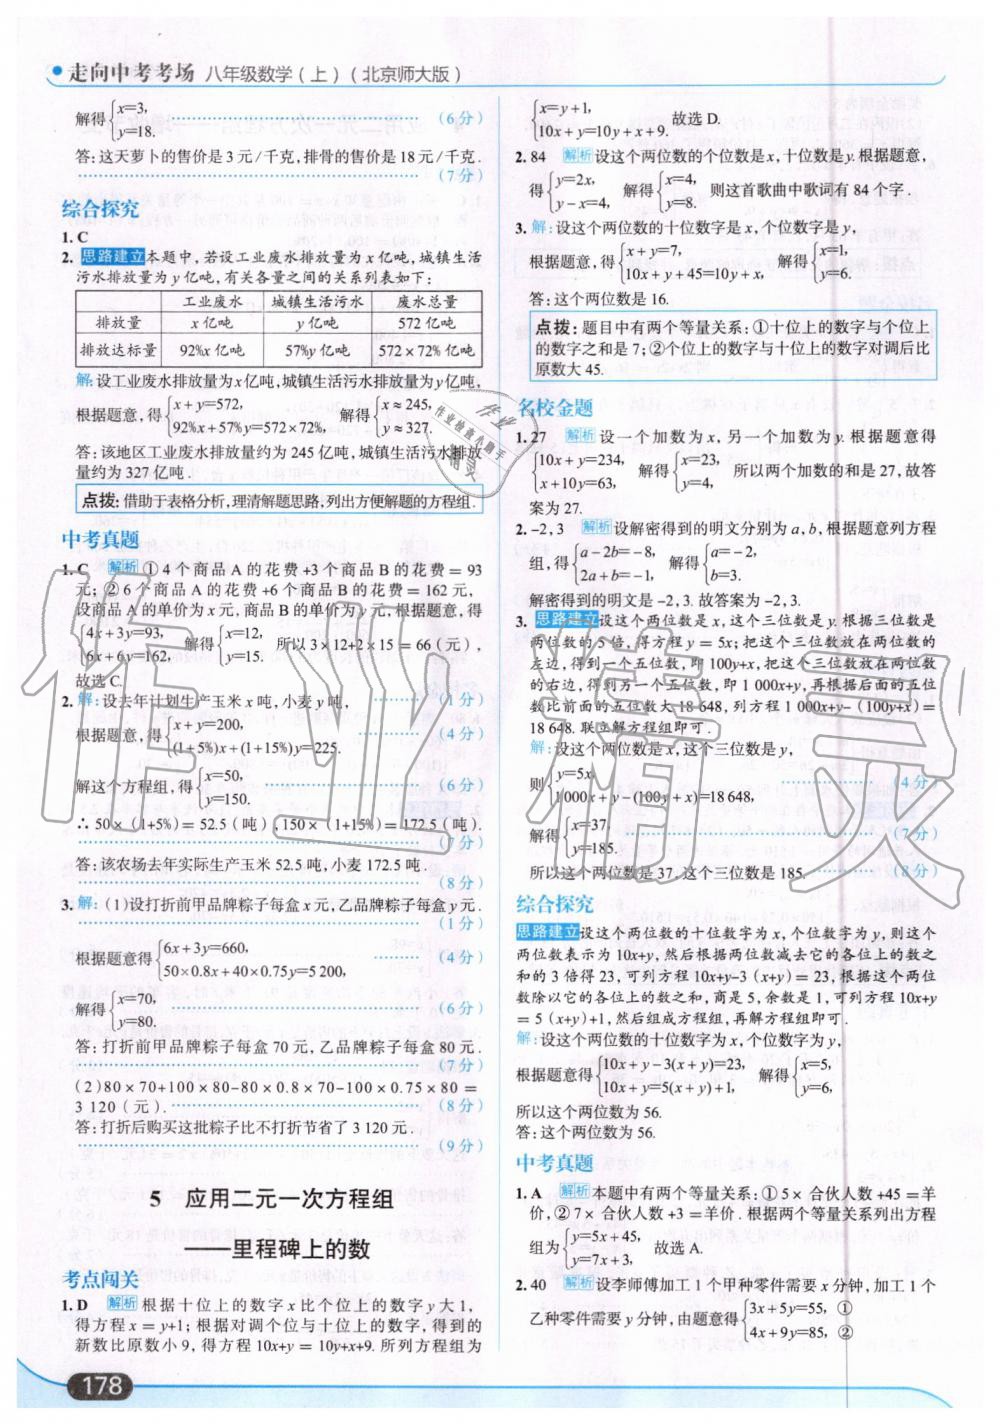 走向中考考场 八年级数学(上)(北京师大版)
解得{x=3, y=18. (6分)
答:这天萝卜的售价是3元/千克,排骨的售价是18元/千克.
(7分)
综合探究
1. C
2. 思路建立 本题中,若设工业废水排放量为x亿吨,城镇生活
污水排放量为y亿吨,有关各量之间的关系列表如下:
工业废水 城镇生活污水 废水总量
排放量 x亿吨 y亿吨 572亿吨
排放达标量 92%x亿吨 57%y亿吨 572×72%亿吨
解:设工业废水排放量为x亿吨,城镇生活污水排放量为y亿吨,
根据题意,得{x+y=572, 92%x+57%y=572×72%, 解得{x≈245, y≈327.
答:该地区工业废水排放量约为245亿吨,城镇生活污水排放
量约为327亿吨.
点拨:借助于表格分析,理清解题思路,列出方便解题的方程组.
中考真题
1. C 解析 ①4个商品A的花费+3个商品B的花费=93
元;②6个商品A的花费+6个商品B的花费=162元,
设商品A的单价为x元,商品B的单价为y元,根据题意,得
{4x+3y=93, 6x+6y=162, 解得{x=12, y=15. 所以3×12+2×15=66(元),
故选C.
2. 解:设去年计划生产玉米x吨,小麦y吨, (1分)
根据题意,得{x+y=200, (1+5%)x+(1+15%)y=225. (4分)
解这个方程组,得{x=50, y=150. (6分)
∴50×(1+5%)=52.5(吨),150×(1+15%)=172.5(吨).
(7分)
答:该农场去年实际生产玉米52.5吨,小麦172.5吨.
(8分)
3. 解:(1)设打折前甲品牌粽子每盒x元,乙品牌粽子每盒y元.
(1分)
根据题意得{6x+3y=660, 50×0.8x+40×0.75y=5 200, (4分)
解得{x=70, y=80. (6分)
答:打折前甲品牌粽子每盒70元,乙品牌粽子每盒80元.
(7分)
(2)80×70+100×80-80×0.8×70-100×0.75×80=
3 120(元). (8分)
答:打折后购买这批粽子比不打折节省了3 120元.
(9分)
5 应用二元一次方程组
——里程碑上的数
考点闯关
1. D 解析 根据十位上的数字x比个位上的数字y大1,
得方程x=y+1;根据对调个位与十位上的数字,得到的
新数比原数小9,得方程10x+y=10y+x+9.所列方程组为
{x=y+1, 10x+y=10y+x+9. 故选D.
2. 84 解析 设这个两位数的个位数是x,十位数是y.根据题意,
得{y=2x, y-x=4, 解得{x=4, y=8. 则这首歌曲中歌词有84个字.
3. 解:设这个两位数的十位数字是x,个位数字是y,
根据题意,得{x+y=7, 10x+y+45=10y+x, 解得{x=1, y=6.
答:这个两位数是16.
点拨:题目中有两个等量关系:①十位上的数字与个位上
的数字之和是7;②个位上的数字与十位上的数字对调后比
原数大45.
名校金题
1. 27 解析 设一个加数为x,另一个加数为y.根据题意得
{10x+y=234, x+10y=63, 解得{x=23, y=4, 所以两个加数的和是27,故答
案为27.
2. -2,3 解析 设解密得到的明文分别为a,b,根据题意列方程
组,得{a-2b=-8, 2a+b=-1, 解得{a=-2, b=3.
解密得到的明文是-2,3.故答案为-2,3.
3. 思路建立 设这个两位数是x,这个三位数是y.根据三位数是
两位数的5倍,得方程y=5x;把这个三位数放在两位数的
左边,得到一个五位数,即100y+x,把这个三位数放在两位数
的右边,得到另一个五位数,即1 000x+y,再根据后面的五位
数比前面的五位数大18 648,列方程1 000x+y-(100y+x)=
18 648.联立解方程组即可.
解:设这个两位数是x,这个三位数是y,
则{y=5x, 1 000x+y-(100y+x)=18 648, (4分)
解得{x=37, y=185. (7分)
所以这个两位数是37,这个三位数是185. (8分)
综合探究
思路建立 设这个两位数的十位数字为x,个位数字为y,则这个
两位数表示为10x+y,然后根据两位数减去它的各位上的数之
和的3倍得23,可列方程10x+y-3(x+y)=23,根据这个两位
数除以它的各位上的数之和,商是5,余数是1,可列方程10x+y
=5(x+y)+1,然后组成方程组,再解方程组即可.
解:设这个两位数的十位数字为x,个位数字为y,
根据题意得{10x+y-3(x+y)=23, 10x+y=5(x+y)+1, 解得{x=5, y=6,
所以这个两位数为56.
答:这个两位数为56.
中考真题
1. A 解析 本题中有两个等量关系:①5×合伙人数+45=羊
价,②7×合伙人数+3=羊价.根据两个等量关系列出方程
组为{y=5x+45, y=7x+3, 故选A.
2. 40 解析 设李师傅加工1个甲种零件需要x分钟,加工1个
乙种零件需要y分钟,由题意得{3x+5y=55, ① 4x+9y=85, ②
178
作业精灵